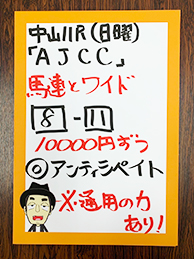 中山11R(日曜)
「AJCC」
馬連とワイド
8-11
10000円ずつ
◎アンティシペイト
※通用の力
あり!